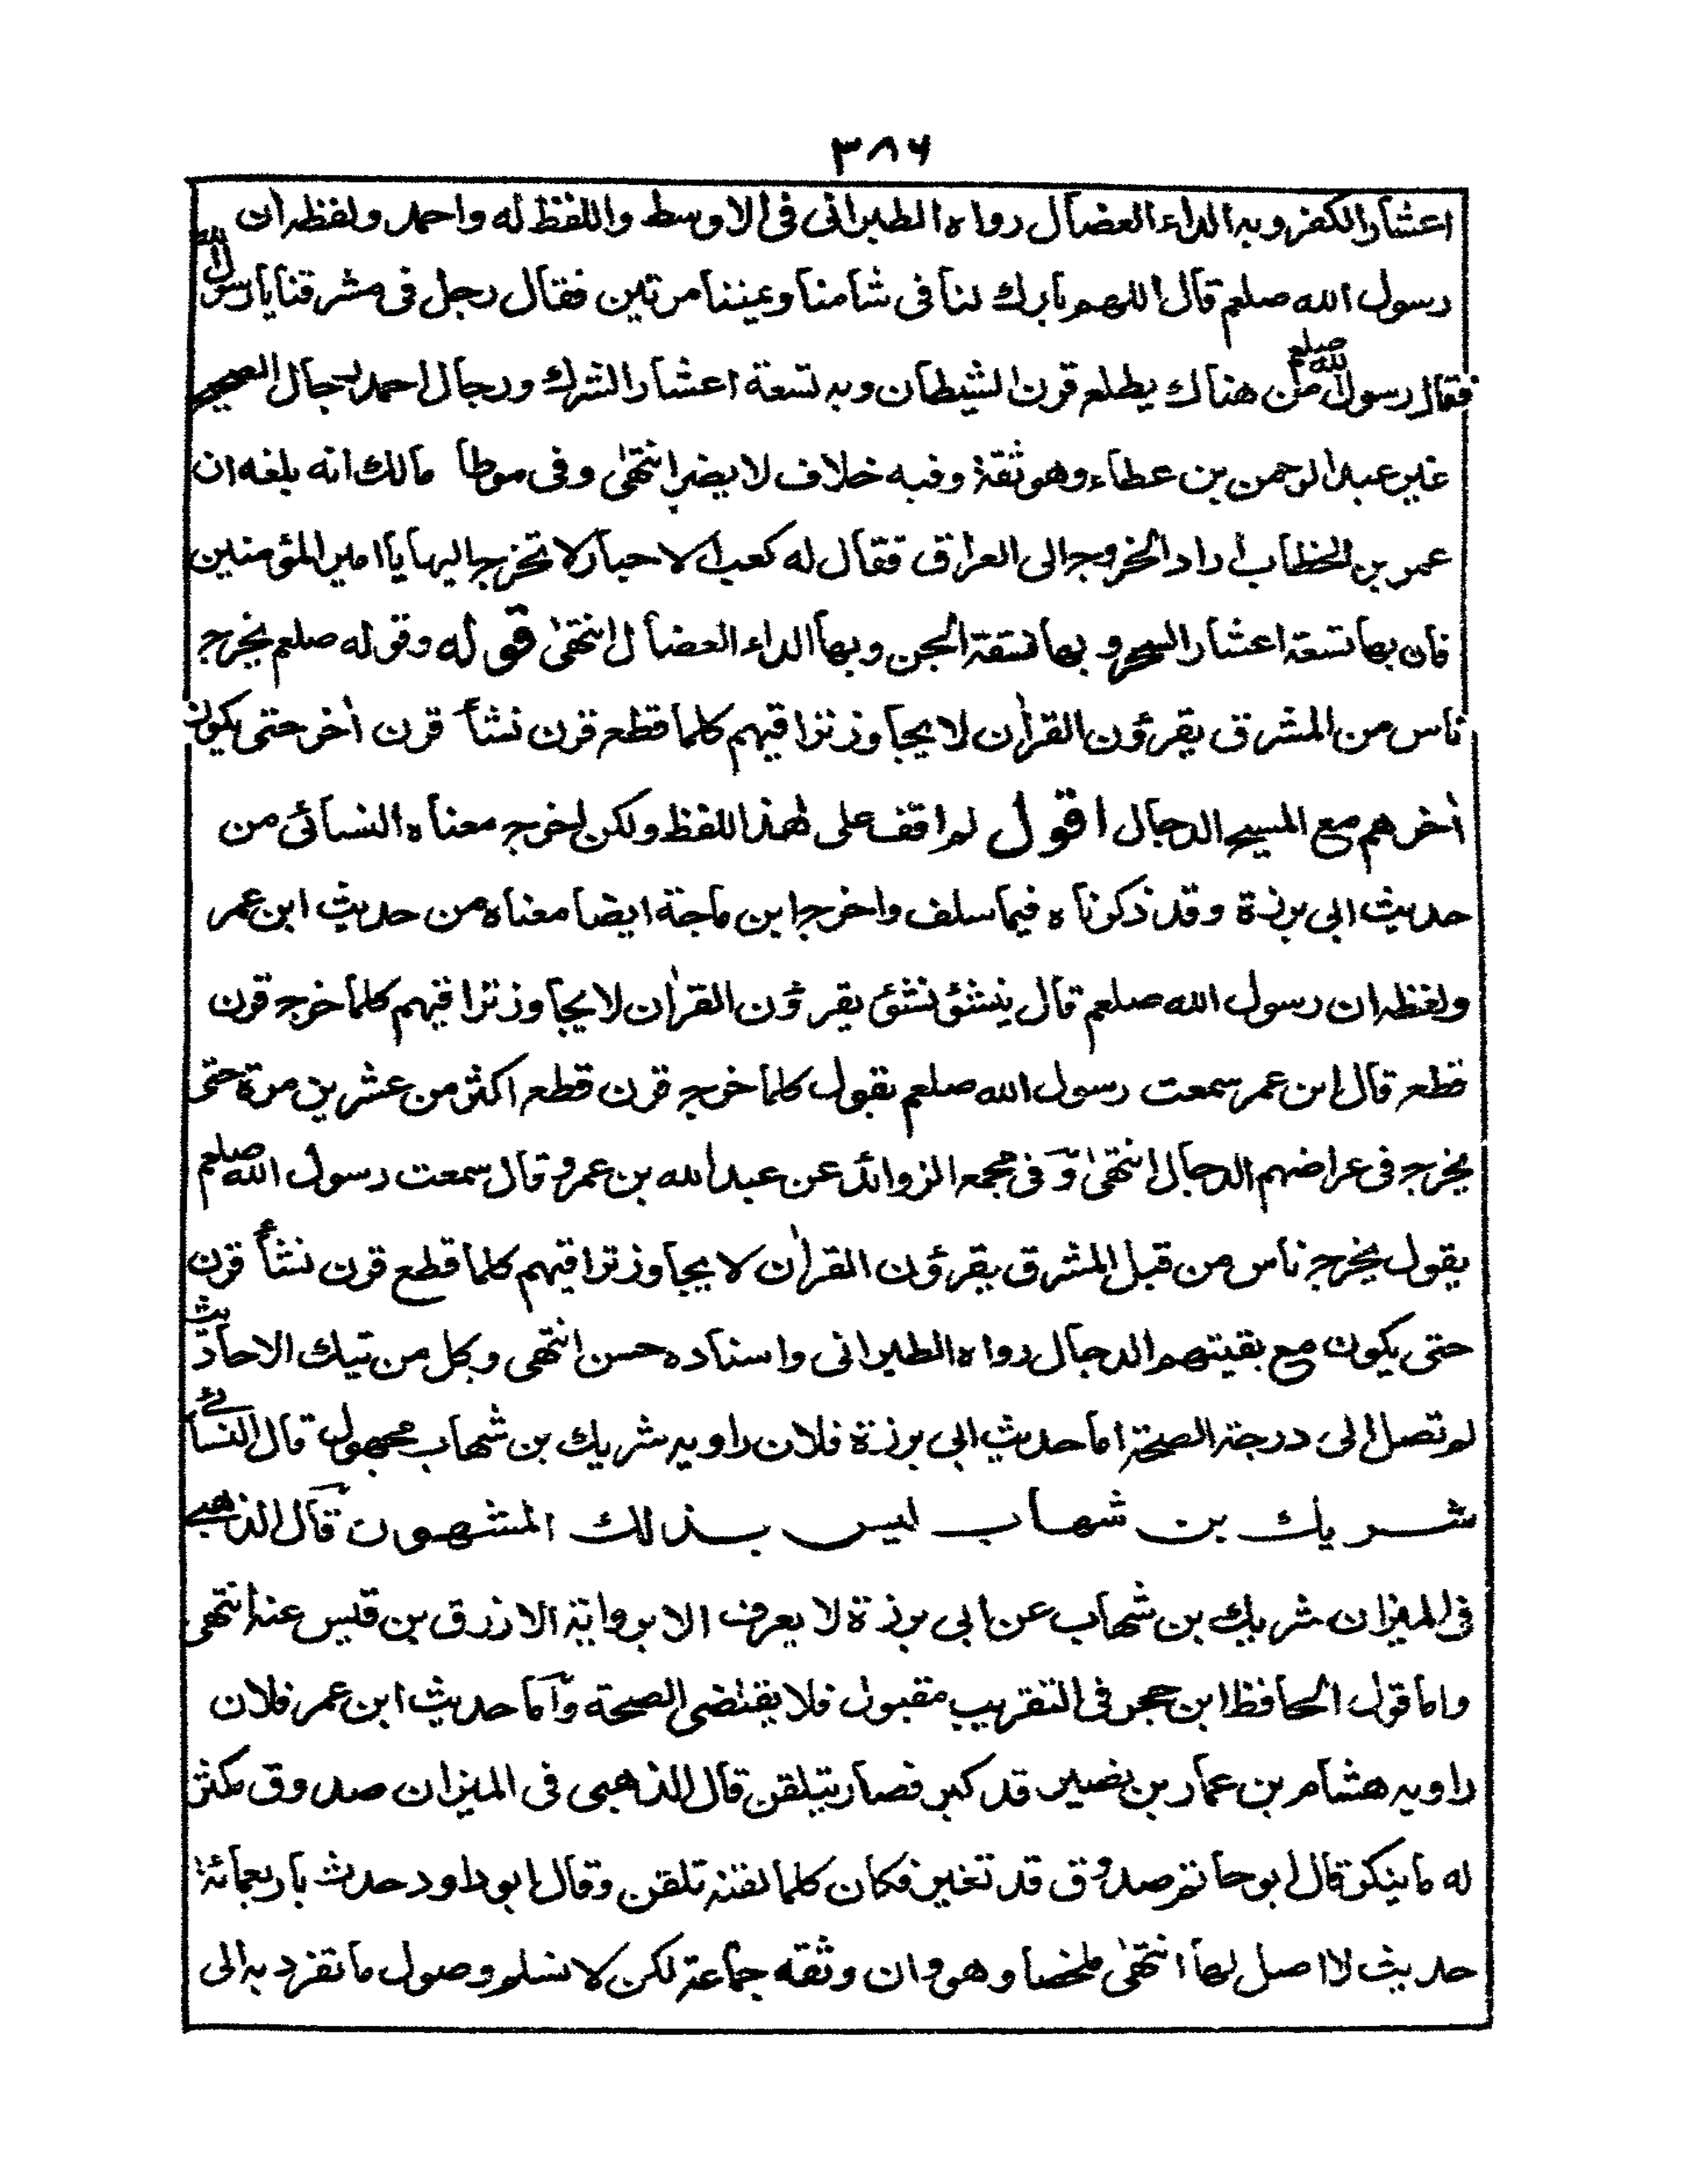 ۳۸۶
اعشار الكفر وبه الداء العضال رواه الطبراني في الاوسط واللفظ له واحمد ولفظه ان
رسول الله صلعم قال اللهم بارك لنا في شامنا ويمننا مرتين فقال رجل في مشرقنا يا رسول الله
فقال رسول الله صلعم من هناك يطلع قرن الشيطان وبه تسعة اعشار الشرك ورجال احمد رجال الصحيح
غير عبد الرحمن بن عطاء وهو ثقة وفيه خلاف لا يضر انتهى وفى موطا مالك انه بلغه ان
عمر بن الخطاب اراد الخروج الى العراق فقال له كعب الاحبار لا تخرج اليها يا امير المؤمنين
فان بها تسعة اعشار السحر و بها فسقة الجن وبها الداء العضال انتهى قوله وقوله صلعم يخرج
ناس من المشرق يقرؤن القرآن لا يجاوز تراقيهم كلما قطع قرن نشأ قرن آخر حتى يكون
آخرهم مع المسيح الدجال اقول لم اقف على هذا اللفظ ولكن اخرج معناه النسائى من
حديث ابى برزة وقد ذكرناه فيما سلف واخرج ابن ماجة ايضا معناه من حديث ابن عمر
ولفظه ان رسول الله صلعم قال ينشؤ نشئ يقرؤن القرآن لا يجاوز تراقيهم كلما خرج قرن
قطع قال ابن عمر سمعت رسول الله صلعم يقول كلما خرج قرن قطع اكثر من عشرين مرة حتى
يخرج فى عراضهم الدجال انتهى و فى مجمع الزوائد عن عبد الله بن عمرو قال سمعت رسول الله صلعم
يقول يخرج ناس من قبل المشرق يقرؤن القرآن لا يجاوز تراقيهم كلما قطع قرن نشأ قرن
حتى يكون مع بقيتهم الدجال رواه الطبرانى واسناده حسن انتهى وكل من تيك الاحاديث
لم تصل الى درجة الصحة اما حديث ابى برزة فلان راويه شريك بن شهاب مجهول قال النسائے
شريك بن شهاب ليس بذلك المشهور قال الذهبے
فى الميزان شريك بن شهاب عن ابى برزة لا يعرف الا برواية الازرق بن قيس عنه انتهى
واما قول الحافظ ابن حجر فى التقريب مقبول فلا يقتضى الصحة واما حديث ابن عمر فلان
راويه هشام بن عمار بن نصير قد كبر فصار يتلقن قال الذهبى فى الميزان صدوق مكثر
له ما ينكر قال ابو حاتم صدوق قد تغير فكان كلما لقنه تلقن وقال ابو داود حدث باربعمائة
حديث لا اصل لها انتهى ملخصا وهو وان وثقه جماعة لكن لا نسلم وصول ما تفرد به الى